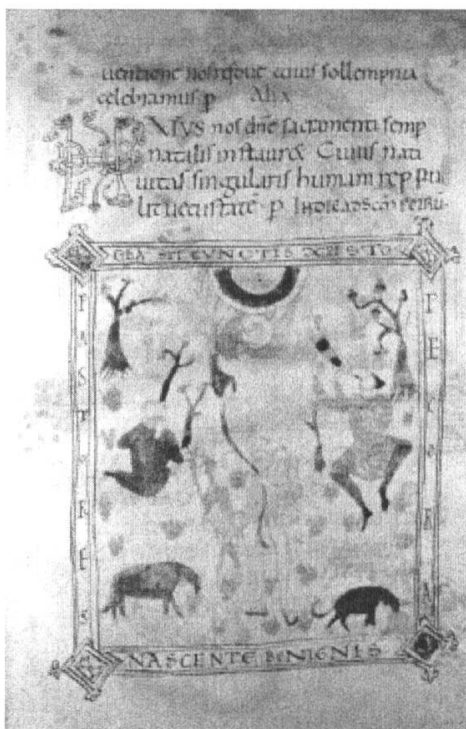 uentione nos refoue cuius sollempnia
celebramus. p Alia
HVIVS nos dne sacramenti semp
natalis instauret Cuius nati
uitas singularis humanam reppu
lit uetustate. p IN DIE AD SCM PETRU
SIT CVNCTIS
PASTORES
NASCENTE BENIGNIS